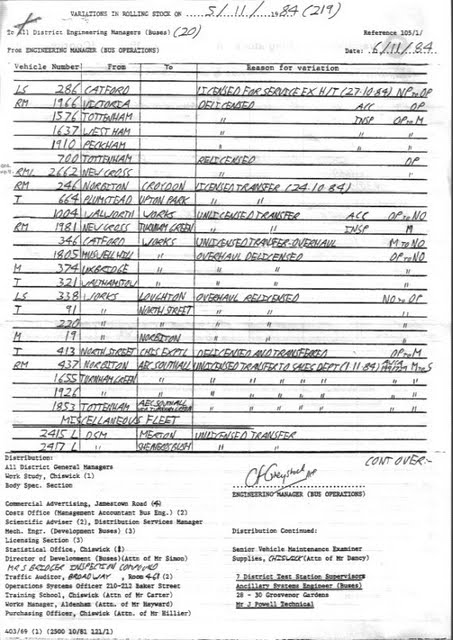 VARIATIONS IN ROLLING STOCK ON 5/11/1984 (219)
To All District Engineering Managers (Buses) (20) Reference 105/1/
From ENGINEERING MANAGER (BUS OPERATIONS) Date: 6/11/84
Vehicle Number From To Reason for variation
LS 286 CATFORD LICENSED FOR SERVICE EX H/T (27·10·84) NP TO OP
RM 1966 VICTORIA DELICENSED ACC OP
1576 TOTTENHAM " INSP OP TO M
1637 WEST HAM " " "
1910 PECKHAM " " "
700 TOTTENHAM RELICENSED OP
RML 2662 NEW CROSS " "
RM 246 NORBITON CROYDON LICENSED TRANSFER (24·10·84)
T 664 PLUMSTEAD UPTON PARK " "
1004 WALWORTH WORKS UNLICENSED TRANSFER ACC OP TO NO
RM 1981 NEW CROSS TURNHAM GREEN " " INSP M
346 CATFORD WORKS UNLICENSED TRANSFER-OVERHAUL M TO NO
1805 MUSWELL HILL " OVERHAUL DELICENSED OP TO NO
M 374 UXBRIDGE " " "
T 321 WALTHAMSTOW " " "
LS 338 WORKS LOUGHTON OVERHAUL RELICENSED NO TO OP
T 91 " NORTH STREET " "
220 " " " "
M 19 " NORBITON " "
T 413 NORTH STREET CHIS EXPTL DELICENSED AND TRANSFERRED OP TO M
RM 437 NORBITON AEC SOUTHALL UNLICENSED TRANSFER TO SALES DEPT (1·11·84) M TO S
1655 TURNHAM GREEN " " " " " " "
1926 " " " " " " " "
1853 TOTTENHAM AEC SOUTHALL VIA TURNHAM GREEN " " " " " "
MISCELLANEOUS FLEET
2415 L DSM MERTON UNLICENSED TRANSFER
2417 L " SHEPHERDS BUSH "
CONT OVER:-
Distribution:
All District General Managers
Work Study, Chiswick (1)
Body Spec. Section
ENGINEERING MANAGER (BUS OPERATIONS)
Commercial Advertising, Jamestown Road (4)
Costs Office (Management Accountant Bus Eng.) (2)
Scientific Adviser (2), Distribution Services Manager
Mech. Engr. (Development Buses) (3)
Licensing Section (3)
Statistical Office, Chiswick (1)
Director of Development (Buses)(Attn of Mr Simon)
MRS BRIDGER INSPECTION COMPOUND
Traffic Auditor, BROADWAY, Room 467 (2)
Operations Systems Officer 210-212 Baker Street
Training School, Chiswick (Attn of Mr Carter)
Works Manager, Aldenham (Attn of Mr Hayward)
Purchasing Officer, Chiswick (Attn of Mr Hillier)
Distribution Continued:
Senior Vehicle Maintenance Examiner
Supplies, CHISWICK (Attn of Mr Dancy)
7 District Test Station Supervisors
Ancillary Systems Engineer (Buses)
28 - 30 Grosvenor Gardens
Mr J Powell Technical
403/69 (1) (2500 10/81 121/1)